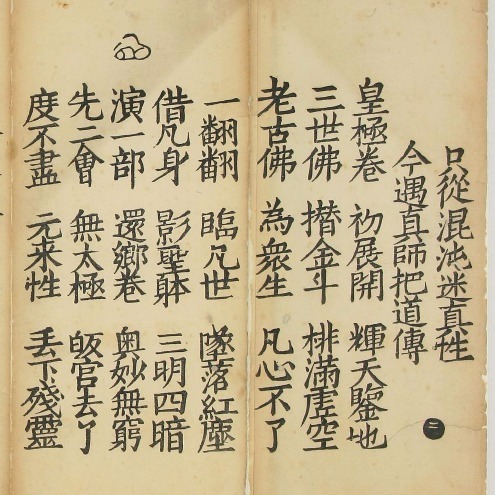 只從混沌迷真性
今遇真師把道傳
皇極卷 初展開 輝天鑒地
三世佛 撍金斗 排滿虛空
老古佛 為衆生 凡心不了
一翻翻 臨凡世 墜落紅塵
借凡身 影聖躰 三明四暗
演一部 還鄉卷 奥妙無窮
先二會 無太極 皈宮去了
度不盡 元来性 丢下殘靈
二